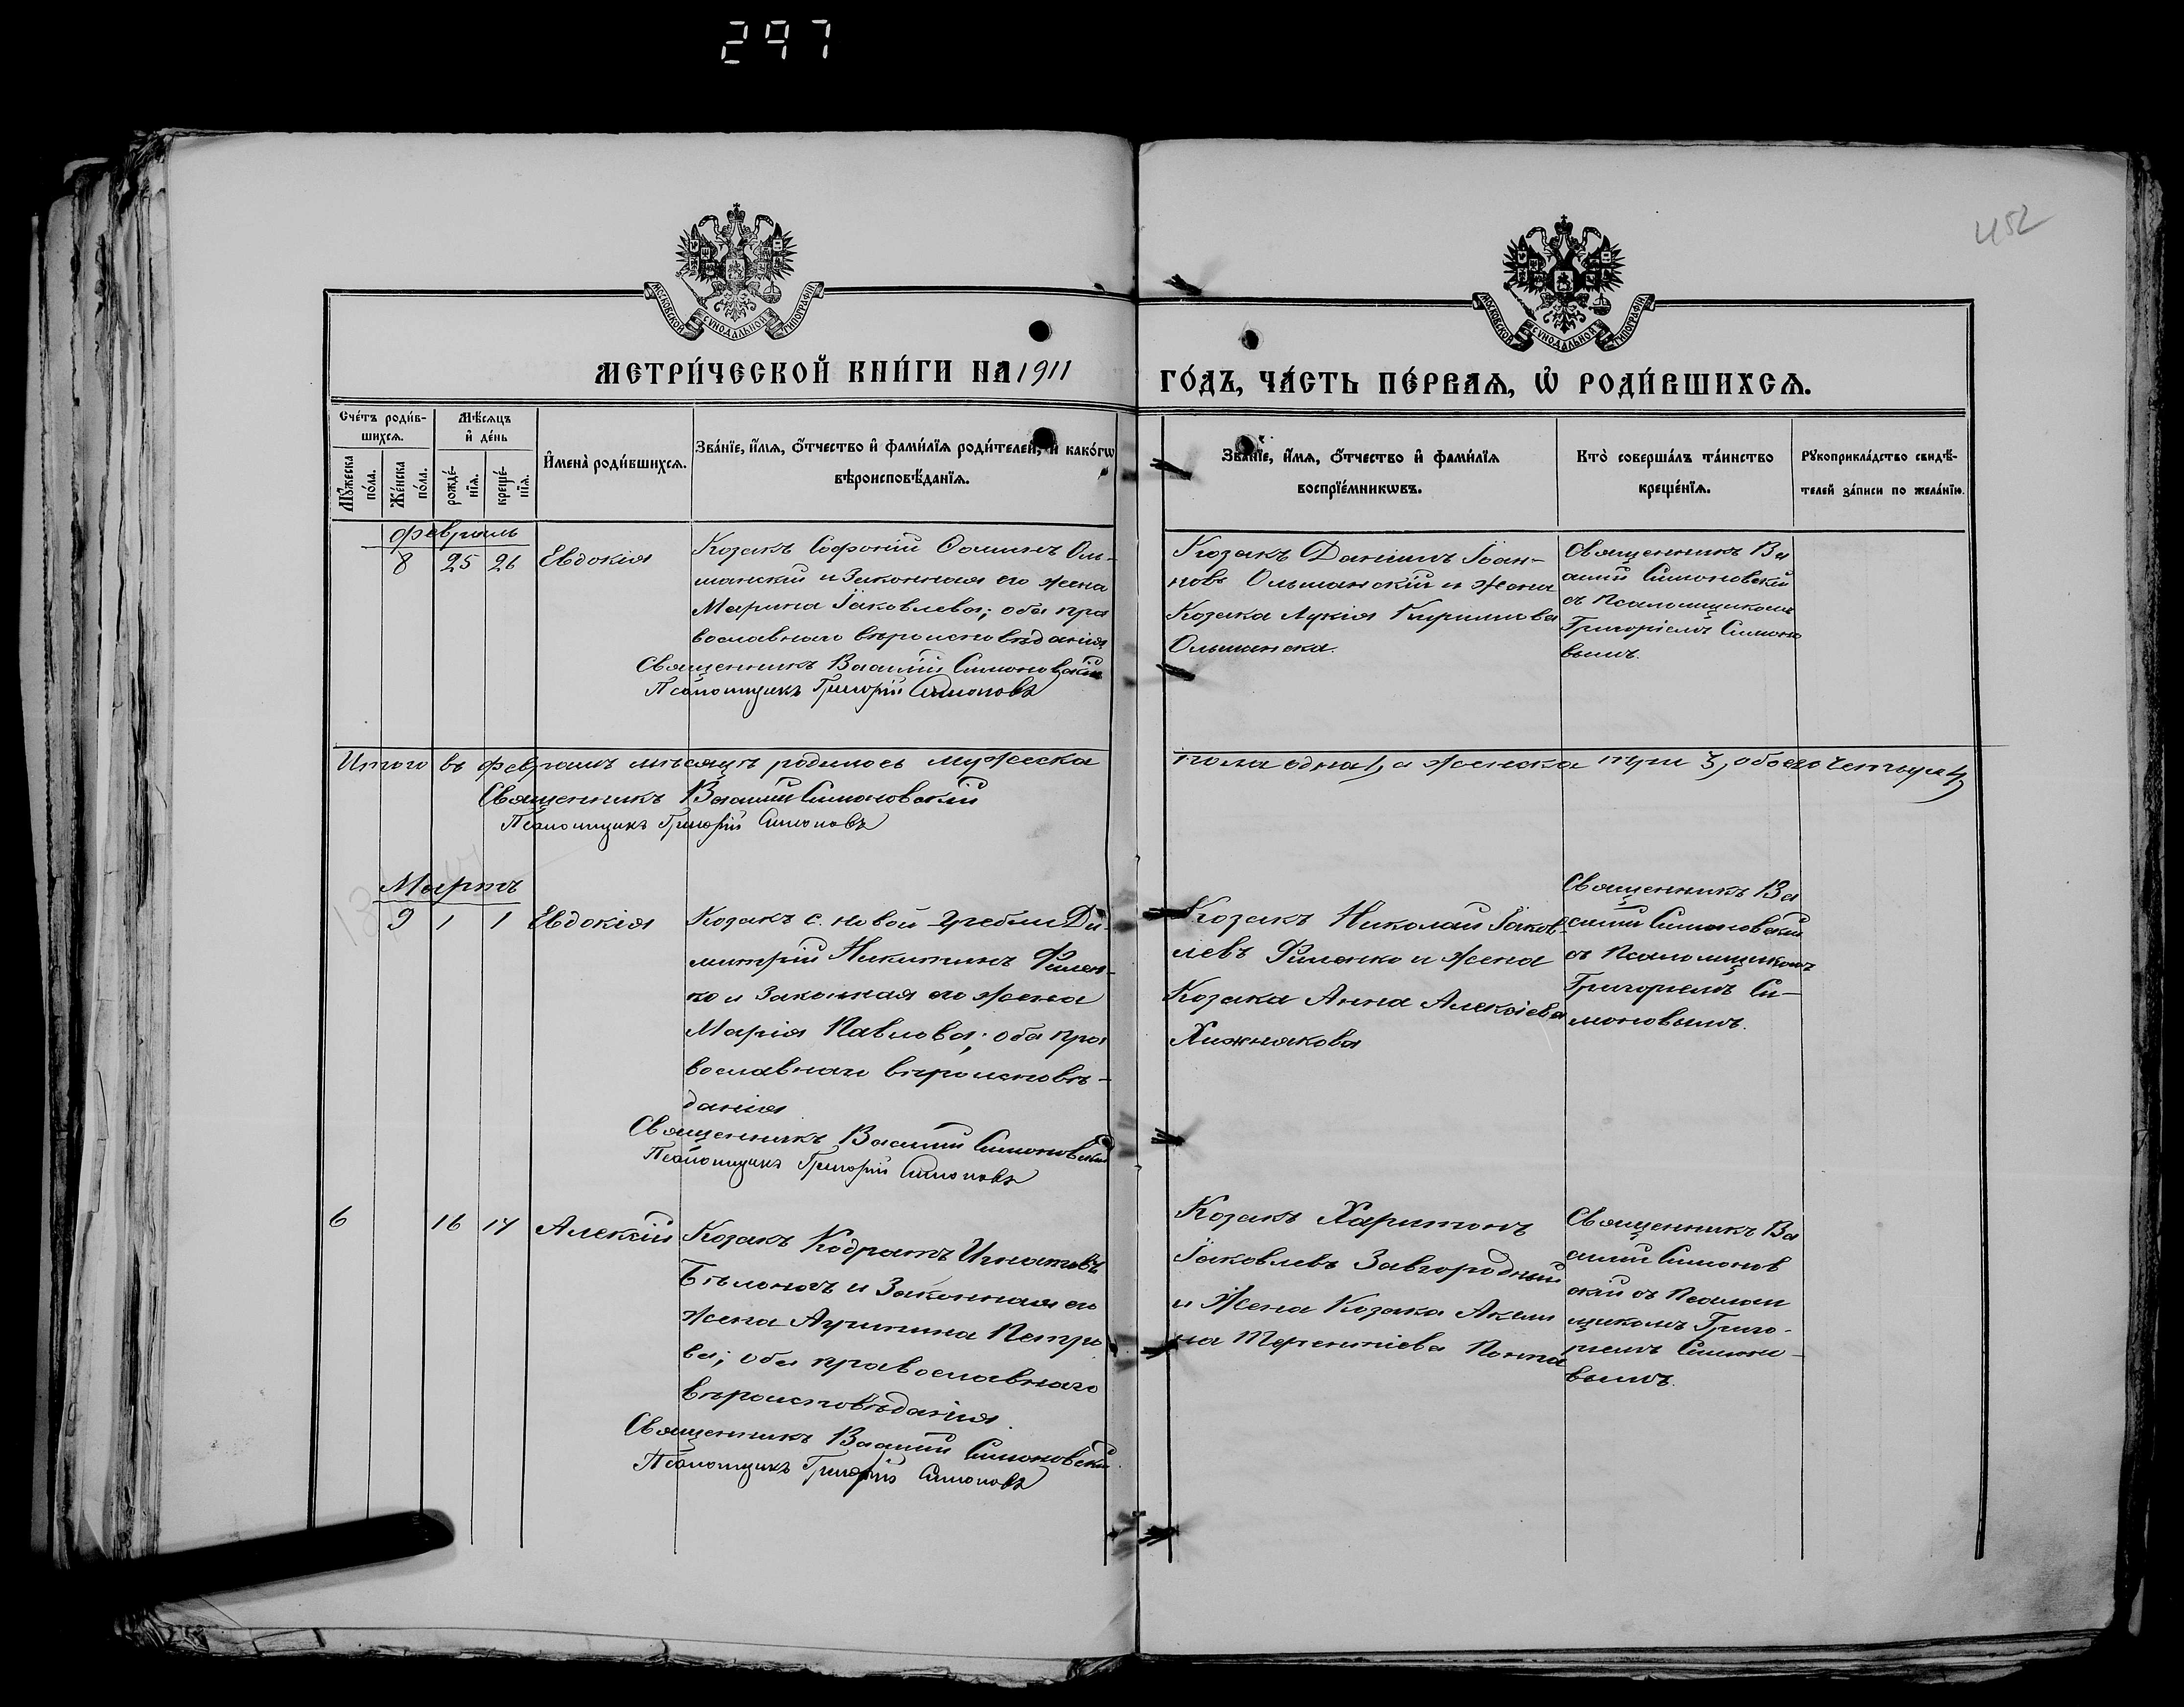 297
452
МОСКОВСКОЙ СУНОДАЛЬНОЙ ТИПОГРАФІИ
МОСКОВСКОЙ СУНОДАЛЬНОЙ ТИПОГРАФІИ
МЕТРИ́ЧЕСКОЙ КНИ́ГИ НА 1911
ГО́ДЪ, ЧА́СТЬ ПЕ́РВАѦ, Ѽ РОДИ́ВШИХСѦ.
Сче́тъ роди́в-
шихсѧ.
Мѣ́сѧцъ
и҆ де́нь
Мꙋ́жеска
по́ла.
Же́нска
по́ла.
рожде́-
нїѧ.
креще́-
нїѧ.
И҆мена̀ роди́вшихсѧ.
Зва́нїе, и҆́мѧ, ѻ҆́тчество и҆ фами́лїѧ роди́телей, и҆ како́гѡ
вѣроисповѣ́данїѧ.
Зва́нїе, и҆́мѧ, ѻ҆́тчество и҆ фами́лїѧ
воспрїе́мникѡвъ.
Кто̀ соверша́лъ та́инство
креще́нїѧ.
Рꙋкоприкла́дство свидѣ́-
телей за́писи по жела́нїю.
Февраль
8 25 26 Евдокія
Козакъ Софоній Фоминъ Оль-
шанскій и законная его жена
Марина Іаковлева; оба пра
вославнаго вѣроисповѣданія
Священникъ Василій Симоновскій
Псаломщикъ Григорій Симоновъ
Козакъ Даніилъ Іоан-
новъ Ольшанскій и жена
Козака Лукія Кириллова
Ольшанска.
Священникъ Ва
силій Симоновскій
съ Псаломщикомъ
Григоріемъ Симоно
вымъ.
Итого въ Февралѣ мѣсяцѣ родилось мужеска
пола одна 1, а женска три 3, обоего четыре 4
Священникъ Василій Симоновскій
Псаломщикъ Григорій Симоновъ
Мартъ
9 1 1 Евдокія
Козакъ с. Новой Гребли Ди-
митрій Никитинъ Филен-
ко и законная его жена
Марія Павлова; оба пра
вославнаго вѣроисповѣ-
данія
Священникъ Василій Симоновскій
Псаломщикъ Григорій Симоновъ
Козакъ Николай Іаков
левъ Филенко и жена
Козака Анна Алексіева
Хижнякова
Священникъ Ва
силій Симоновскій
съ Псаломщикомъ
Григоріемъ Си-
моновымъ.
6 16 17 Алексій
Козакъ Кодратъ Игнатовъ
и законная его
жена Агрипина Петро
ва; оба православнаго
вѣроисповѣданія.
Священникъ Василій Симоновскій
Псаломщикъ Григорій Симоновъ
Козакъ Харитонъ
Іаковлевъ Завгородный
и Жена Козака Акили
на Терентіева
Священникъ Ва
силій Симонов
скій съ Псалом
щикомъ Григо-
ріемъ Симоно-
вымъ.